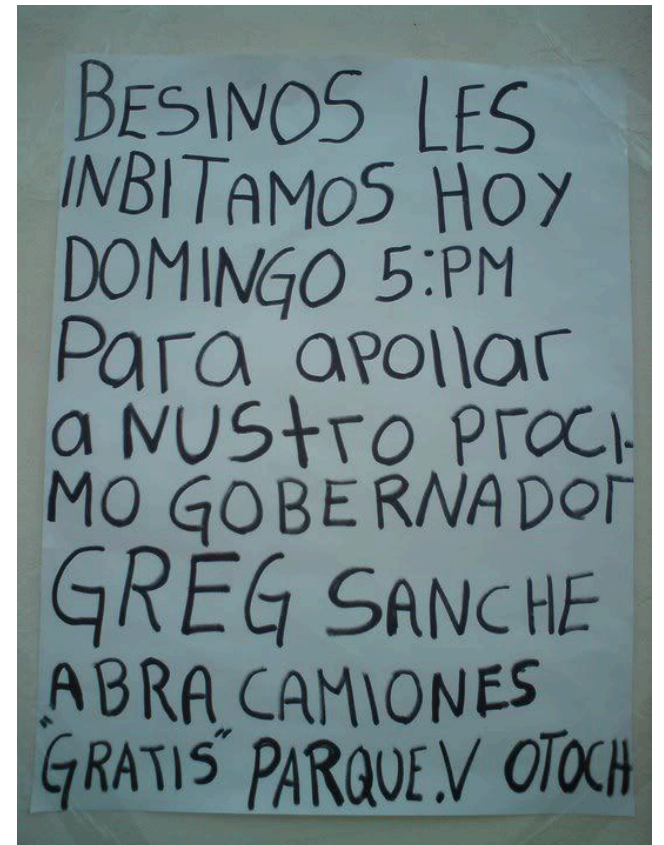 BESINOS LES
INBITAMOS HOY
DOMINGO 5:PM
Para apollar
a NUStro proci-
MO GOBERNADOr
GREG SANCHE
ABRA CAMIONES
"GRATIS" PARQUE.V OTOCH